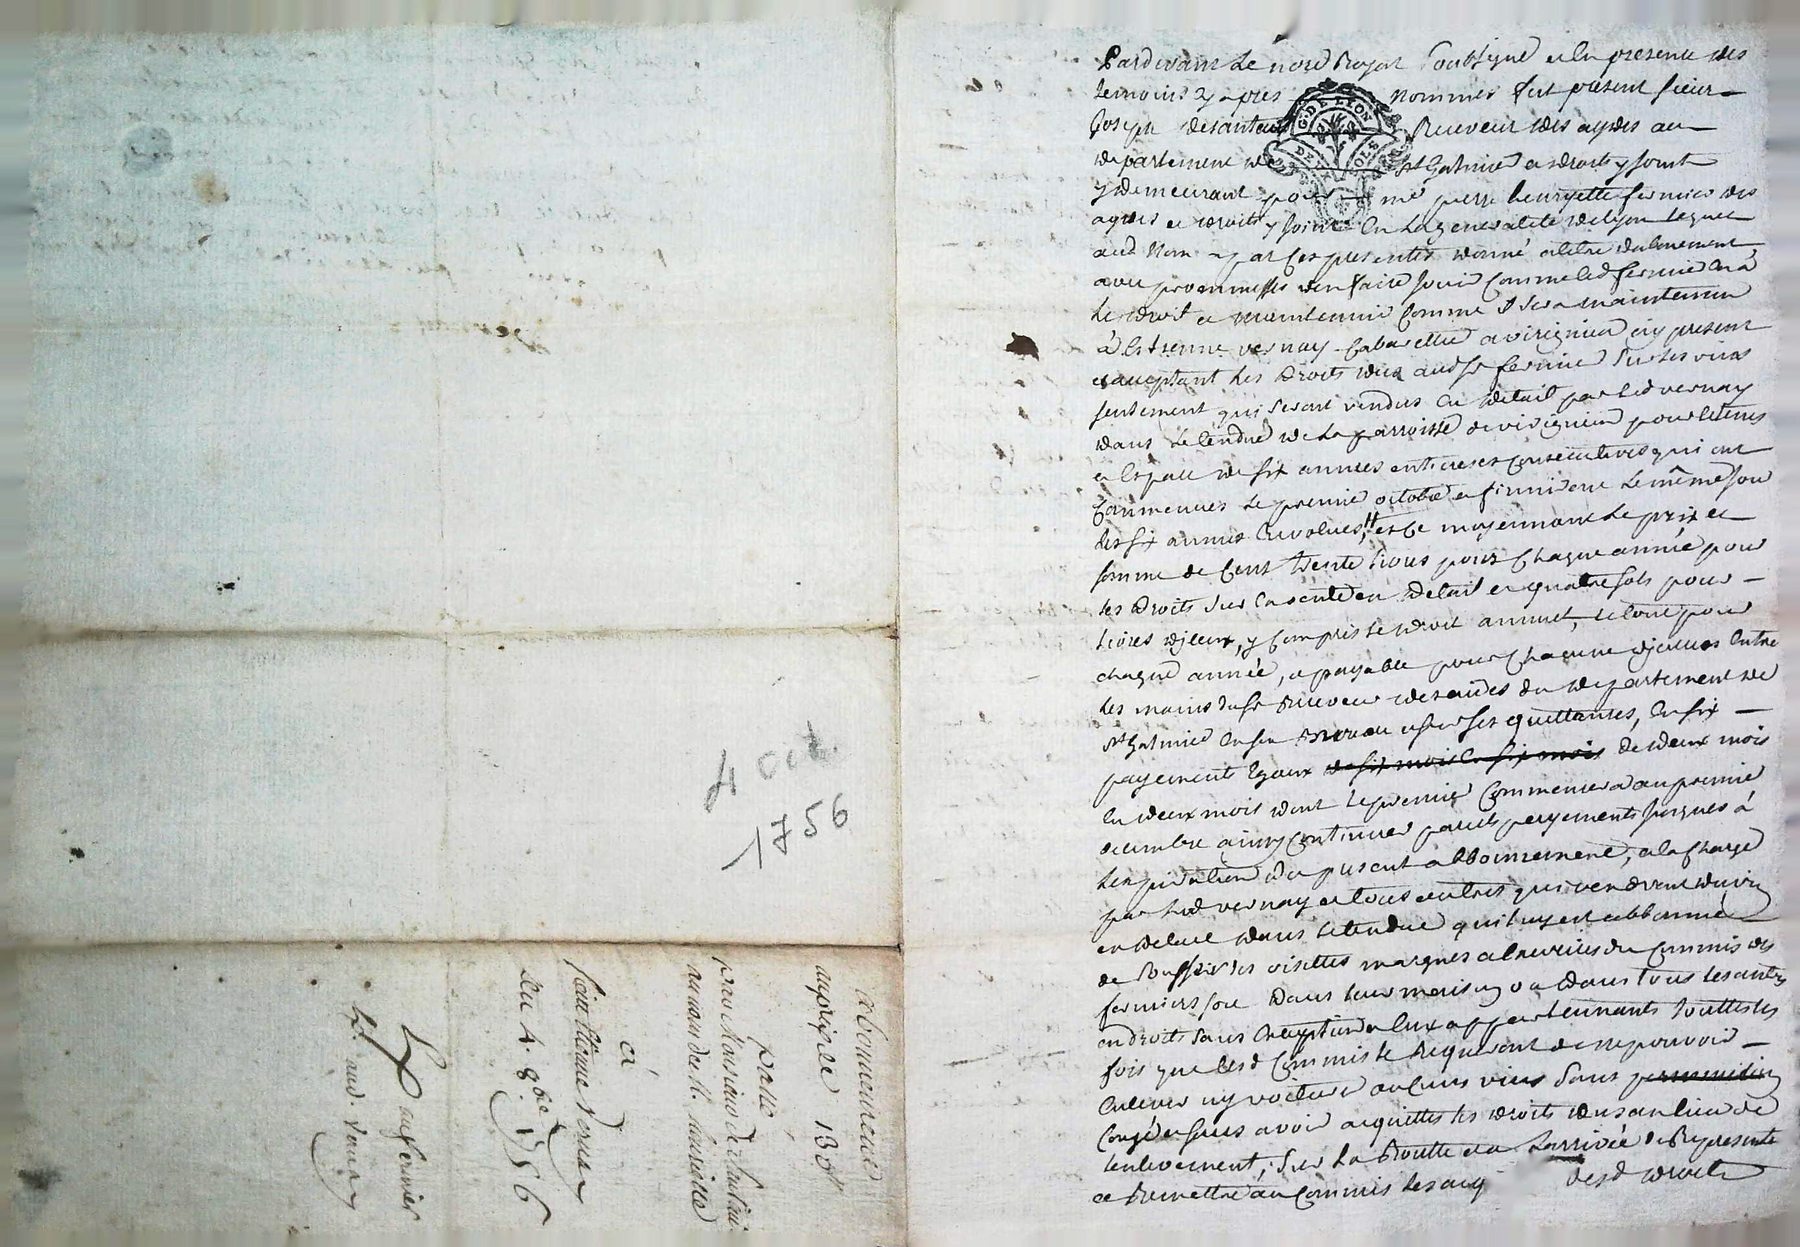 4 oct.
1756
abonnement
au prix de 130ᵗᵗ
passé
par Monsieur desantaü
au nom de Sr. henriette
à
sieur Etiene Vernay
Du 4. 8bre 1756
Pardevant Le nore Royal Soubsigné et En presence des
temoins Cy apres nommés fut present sieur
Joseph desantaux Receveur des aydes au
departement de St Galmier et droits y joints
y demeurant pour me pierre henryette fermier des
aydes et droits y joints En La generalité de lyon lequel
aud Nom a par Ces presentes donné a titre dabonement
avec prommesse den faire jouir Comme led fermier En a
Le droit et maintennir Comme Il sera maintennu
à Estienne vernay Cabarettier a virignieu cy present
et acceptant Les Droits dus aud sr fermier sur les vins
seulement qui seront vendus En detail par Led vernay
dans Létendue de La parroisse de virignieu pour Le tems
et Espace de six années entieres et Consecutives qui ont
Commencées Le premier octobre et finniront Le même jour
Les six années Revolues, et Ce moyennant Le prix et
somme de Cent trente Livres pour Chaque année pour
les Droits sur La vente en detail et quatre sols pour
Livres dyceux, y Compris Le droit annuel, Le tout pour
chaque année, et payable pour Chacune dycelles Entre
Les mains dud sr Receveur des aides du departement de
St Galmier En son Bureau et sur ses quittances, En six
payements Egaux de six mois En six mois de deux mois
En deux mois dont Le premier Commencera au premier
decembre ainsy Continuer pareils payements jusques à
Lexpiration du present abbonnement, a la Charge
par Led vernay et tous autres qui vendront du vin
en detail dans Létendue quil luy est abbonnée
de souffrir Les visittes marques et Exercices du Commis des
fermiers soit Dans leur maison ou Dans tous Les autres
endroits sans Exception a Eux appartennants touttes les
fois que lesd Commis Le Requeront de ne pouvoir
Enlever ny voiturer aucuns vins sans permission
Congé et sans avoir acquitté Les droits dus au lieu de
Lenlevement, sur La Routte et a Larrivée de Representer
et Remettre au Commis Les acq desd droits